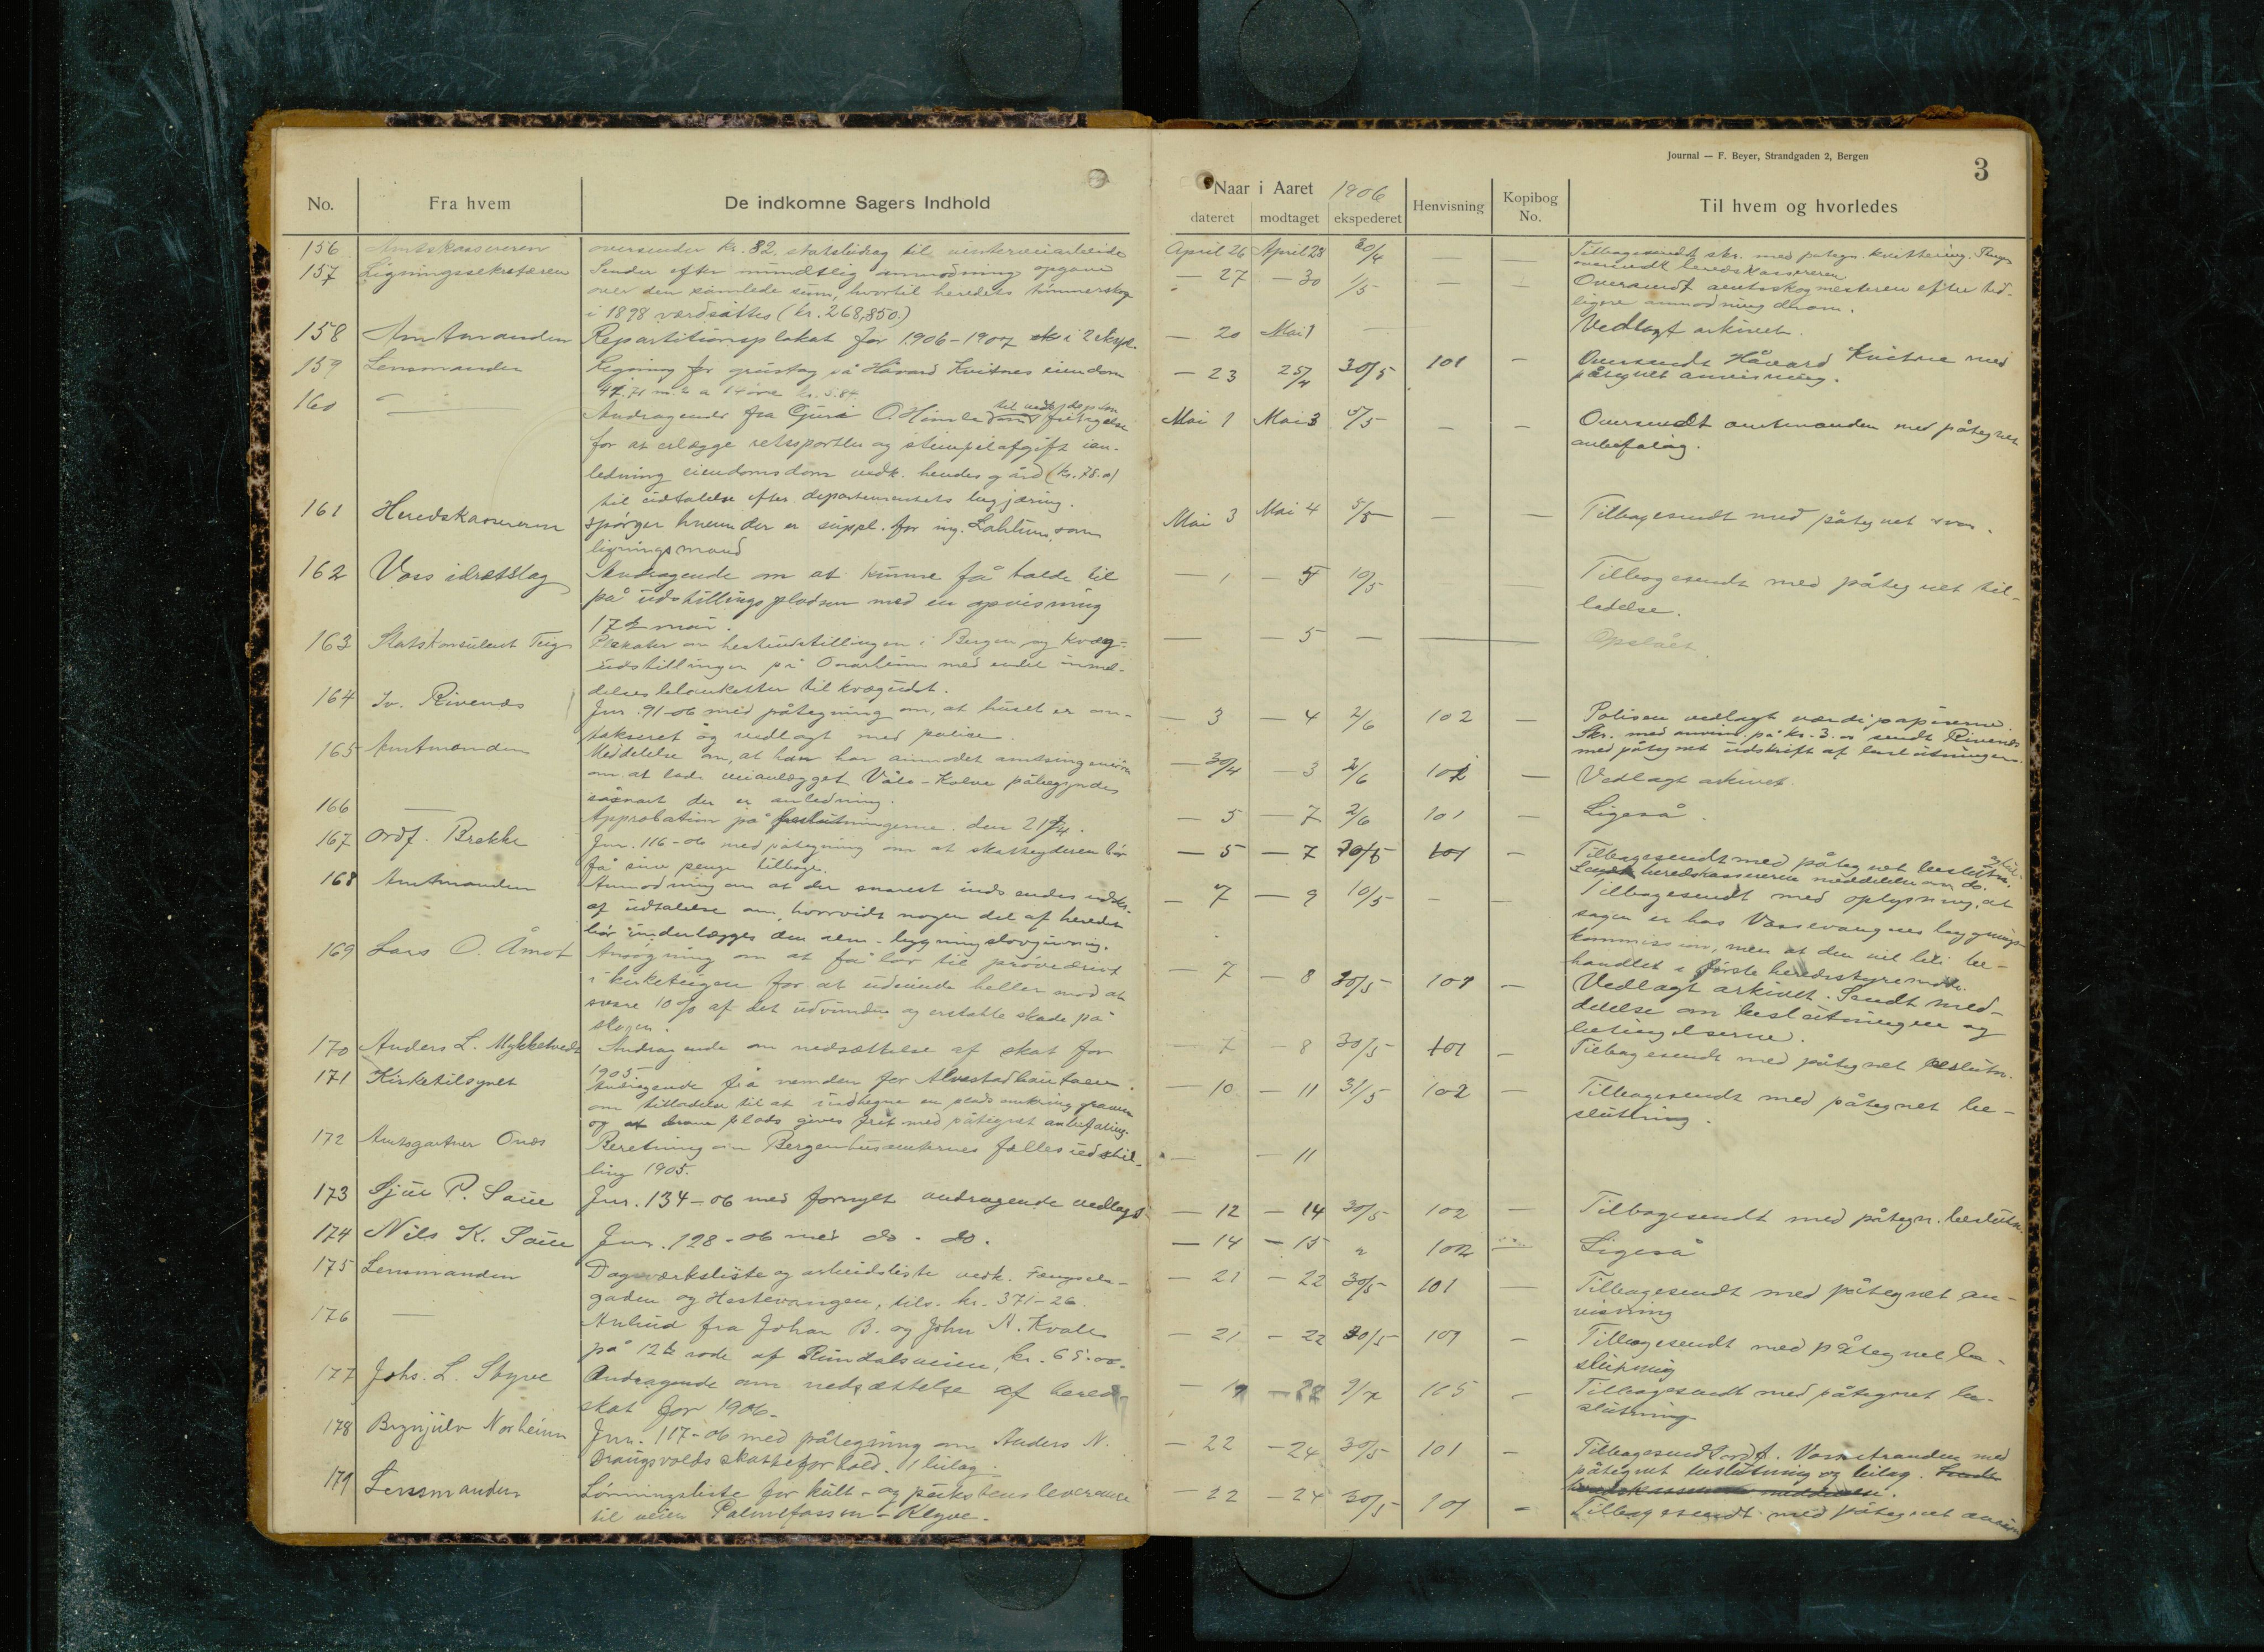 Journal — F. Beyer, Strandgaden 2, Bergen
3
No.
Fra hvem
De indkomne Sagers Indhold
Naar i Aaret 1906
dateret
modtaget
ekspederet
Henvisning
Kopibog No.
Til hvem og hvorledes
156 Amtskassereren oversender kr. 82, statsbidrag til vinterveiarbeide
April 26 April 28 30/4 — — Tilbagesendt skr. med påtegn. kvittering. Penge
oversendt heredskassereren
157 Ligningssekretæren Sender efter mundtlig anmodning opgave
over den samlede sum, hvortil heredets tømmerskog
i 1898 værdsattes (kr. 268,850.)
— 27 — 30 1/5 — — Oversendt amtsskogmesteren efter tid-
ligere anmodning derom.
158 Amtmanden Repartitionsplakat for 1906-1907 i 2 ekspl.
— 20 Mai 1 — Vedlagt arkivet.
159 Lensmanden Regning for grustag på Håvard Kvitnes eiendom
— 23 25/4 30/5 101 — Oversendt Håvard Kvitne med
påtegnet anvisning.
160 — Andragende fra Guri O. Himle fritagelse
for at erlægge retssportler og stempelafgift i an-
ledning eiendomsdom vedk. hendes gård (kr. 78.)
til udtalelse efter departementets begjæring.
Mai 1 Mai 3 5/5 — — Oversendt amtmanden med påtegnet
anbefaling.
161 Heredskassereren Spørger hvem der er suppl. for ing. Lahlum som
ligningsmand
Mai 3 Mai 4 5/5 — — Tilbagesendt med påtegnet svar.
162 Voss idrætslag Andragende om at kunne få holde til
på udstillingspladsen med en opvisning
17de mai.
— 1 — 5 10/5 — Tilbagesendt med påtegnet til-
ladelse.
163 Statskonsulent Teig Plakater om hesteudstillingen i Bergen og kvæg-
udstillingen på Onarheim med endel inmel-
delsesblanketter til kvægudst.
— — 5 — — Opslået.
164 Iv. Rivenæs Jnr. 91-06 med påtegning om, at huset er om-
takseret og vedlagt med polise.
— 3 — 4 2/6 102 — Polisen vedlagt værdipapirerne
Skr. med anvisn. på kr. 3. sendt Rivenæs
med påtegnet udskrift af beslutningen.
165 Amtmanden Meddelelse om, at han har anmodet amtsingeniøren
om at lade veianlægget Våle-Kolve påbegyndes
såsnart der er anledning.
— 30/4 — 3 2/6 102 — Vedlagt arkivet.
166 — Approbation på beslutningerne den 21/4.
— 5 — 7 2/6 101 — Ligeså.
167 Ordf. Brekke Jnr. 116-06 med påtegning om at skatteyderen bør
få sine penge tilbage.
— 5 — 7 30/5 101 — Tilbagesendt med påtegnet beslutn.
Sendt heredskassereren meddelelse om do.
168 Amtmanden Anmodning om at der snarest indsendes
af udtalelse om, hvorvidt nogen del af heredet
bør underlægges den alm. bygningslovgivning.
— 7 — 9 10/5 — — Tilbagesendt med oplysning, at
sagen er hos Vossevangens bygnings-
kommission, men at den vil bli be-
handlet i første heredsstyremøde.
169 Lars O. Åmot Ansøgning om at få lov til prøvedrift
i kirketeigen for at udvinde heller mod at
svare 10 % af det udvundne og erstatte skade på
skogen.
— 7 — 8 30/5 101 — Vedlagt arkivet. Sendt med-
delelse om beslutningen og
betingelserne.
170 Anders L. Mykkeltvedt Andragende om nedsættelse af skat for
1905
— 7 — 8 30/5 101 — Tilbagesendt med påtegnet beslutn.
171 Kirketilsynet Andragende fra nemden for Alvestadbautaen
om tilladelse til at indhegne en plads omkring graven
og at denne plads gives frit med påtegnet anbefaling.
— 10 — 11 31/5 102 — Tilbagesendt med påtegnet be-
slutning.
172 Amtsgartner Onæs Beretning om Bergenhusamternes fællesudstil-
ling 1905.
— — 11
173 Sjur P. Saue Jnr. 134-06 med fornyet andragende vedlagt
— 12 — 14 30/5 102 — Tilbagesendt med påtegn. beslutn.
174 Nils K. Saue Jnr. 128-06 med do. do.
— 14 — 15 " 102 — Ligeså
175 Lensmanden Dagsværksliste og arbeidsliste vedk. Fængsels-
gaden og Hestevangen, tils. kr. 371-26.
— 21 — 22 30/5 101 — Tilbagesendt med påtegnet an-
visning
176 — Anbud fra Johan B. og John A. Kvale
på 12te rode af Rundalsveien, kr. 65.00.
— 21 — 22 30/5 101 — Tilbagesendt med påtegnet be-
slutning
177 Johs. L. Styve Andragende om nedsættelse af hereds-
skat for 1906.
— 19 — 22 9/7 105 — Tilbagesendt med påtegnet be-
slutning
178 Brynjulv Norheim Jnr. 117-06 med påtegning om Anders N.
Draugsvolds skatteforhold. 1 bilag.
— 22 — 24 30/5 101 — Tilbagesendt ordf. Vossestranden med
påtegnet beslutning og bilag.
179 Lensmanden Lønningsliste for kult- og pukstensleverance
til veien Palmefossen - Kløve.
— 22 — 24 30/5 101 — Tilbagesendt med påtegnet anvisn.